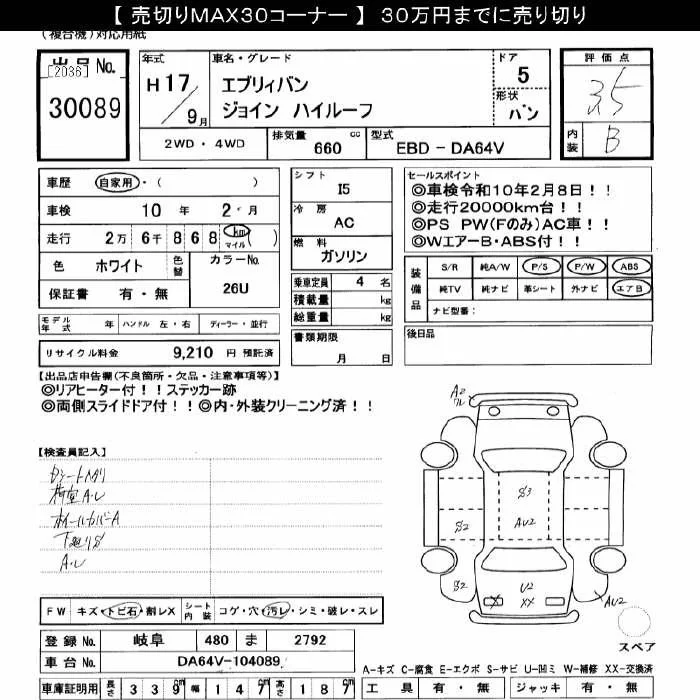 【 売切りMAX30コーナー 】 30万円までに売り切り
（複合機）対応用紙
出品 No.
[2036]
30089
年式
H17/9月
車名・グレード
エブリィバン
ジョイン ハイルーフ
ドア
5
形状
バン
評価点
3.5
内装 B
2WD ・ 4WD
排気量 660 cc
型式 EBD - DA64V
車歴 自家用・( )
車検 10 年 2 月
走行 2万 6千 8 6 8 km マイル ( )
色 ホワイト 色替 カラーNo. 26U
保証書 有・無
モデル年式 年 ハンドル 左・右 ディーラー・並行
リサイクル料金 9,210 円 預託済
シフト I5
冷房 AC
燃料 ガソリン
乗車定員 4 名
積載量 kg
総重量 kg
書類期限 月 日
セールスポイント
◎車検令和10年2月8日！！
◎走行20000km台！！
◎PS PW(Fのみ)AC車！！
◎Wエアー B・ABS付！！
装備品
S/R 純A/W P/S P/W ABS
純TV 純ナビ 革シート 外ナビ エアB
ナビ型番：
後日品
【出品店申告欄(不良箇所・欠品・注意事項等)】
◎リアヒーター付！！ステッカー跡
◎両側スライドドア付！！◎内・外装クリーニング済！！
【検査員記入】
荷室A.L
ホイールカバーA
A.L
A2
S3
AU2
S2
S2
U2
XX
AU2
スペア
FW キズ・トビ石・割レX シート内装 コゲ・穴・汚レ・シミ・破レ・スレ
登録 No. 岐阜 480 ま 2792
車台 No. DA64V-104089
車庫証明用 長さ 339cm 幅 147cm 高さ 187cm
A-キズ C-腐食 E-エクボ S-サビ U-凹ミ W-補修 XX-交換済
工具 有・無 ジャッキ 有・無